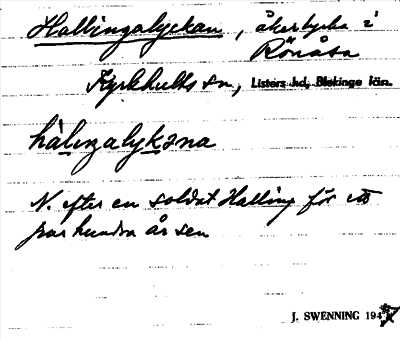 Hallingalyckan, åkerlycka i
Rönåsa
Kyrkhults sn, Listers hd, Blekinge län.
hàlıŋalykəna
N. efter en soldat Halling för ett
par hundra år sen
J. SWENNING 1947